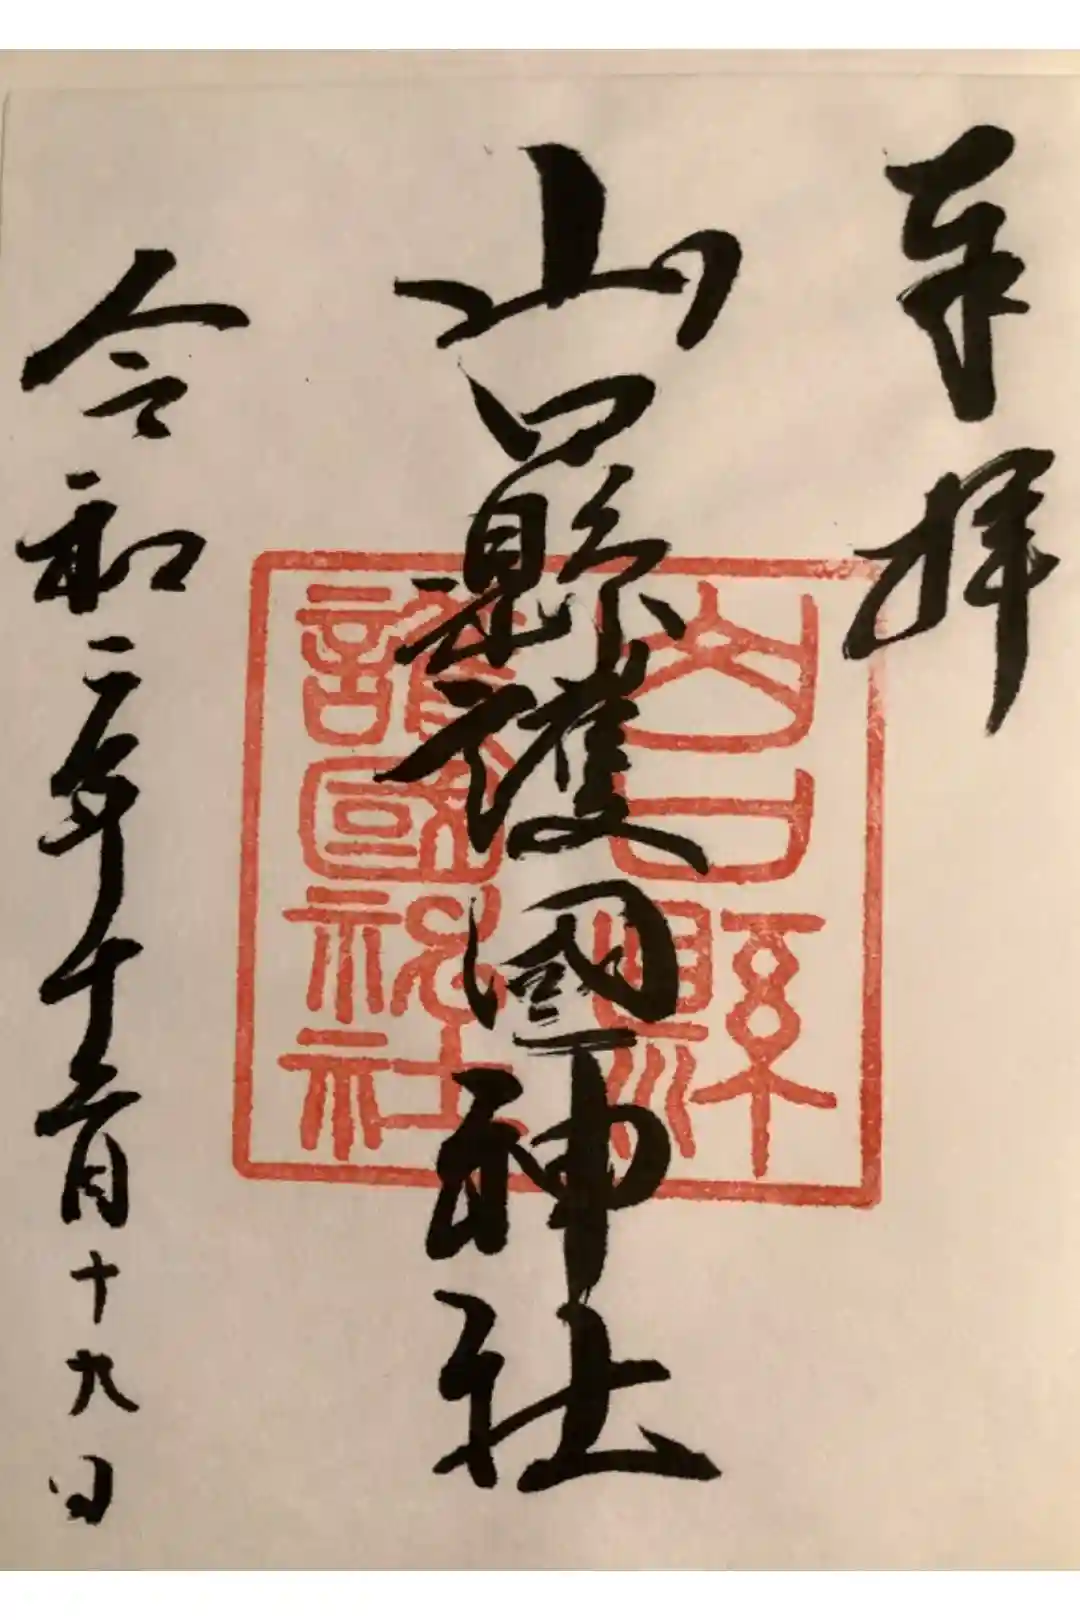 奉拝
山口縣護國神社
山口縣
護國神社
令和二年十二月十九日